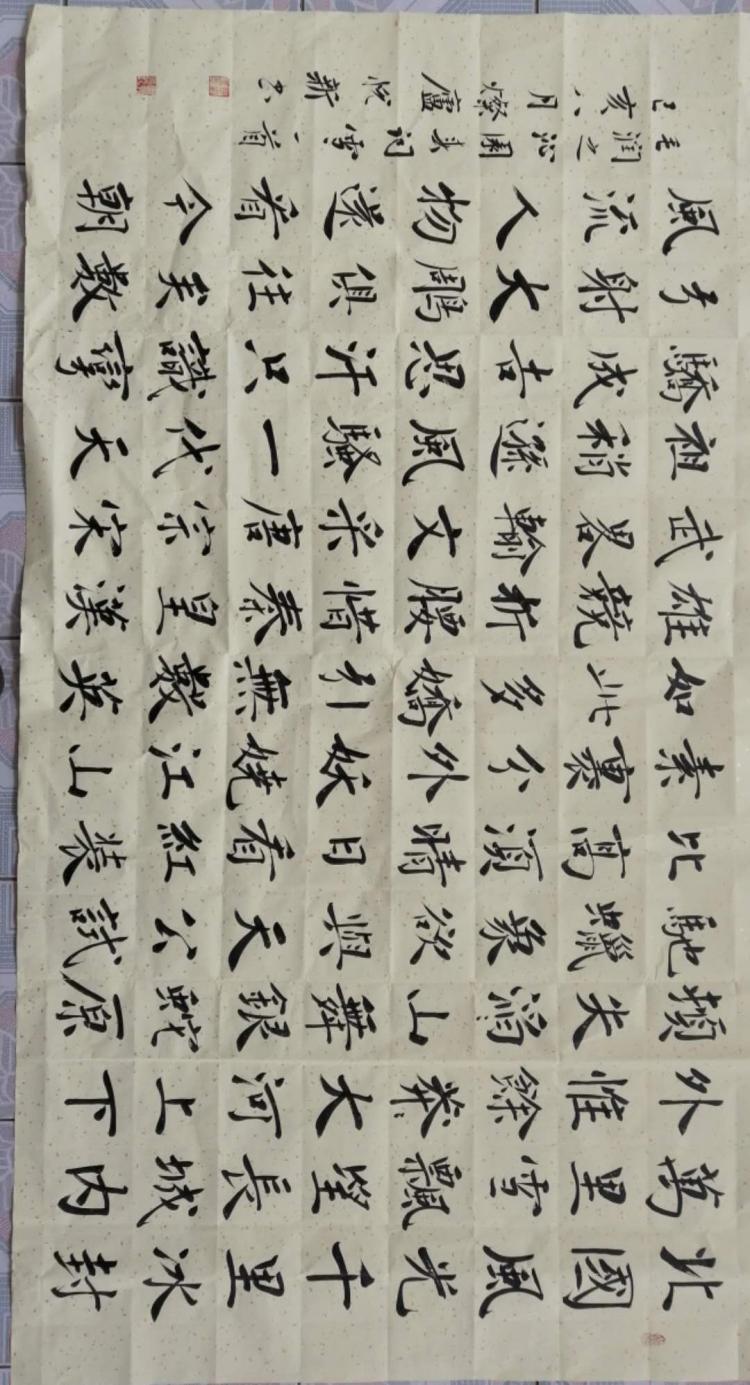 北國風光千里冰封
萬里雪飄望長城內
外惟餘莽〻大河上下
頓失滔〻山舞銀蛇原
馳蠟象欲與天公試
比高須晴日看紅裝
素裹分外妖嬈江山
如此多嬌引無數英
雄競折腰惜秦皇漢
武畧輸文采唐宗宋
祖稍遜風騷一代天
驕成吉思汗只識彎
弓射大鵰俱往矣數
風流人物還看今朝
毛润之沁園春词雪一首
己亥八月燦盧悦新书